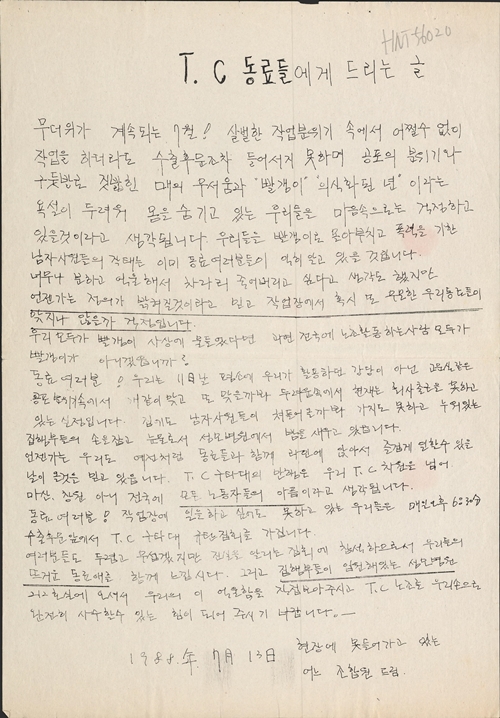 HNT-56020
T. C 동료들에게 드리는 글
무더위가 계속되는 7월! 살벌한 작업분위기 속에서 어쩔수 없이
작업을 하더라도 수출후문조차 들어서지 못하며 공포의 분위기나
구둣발로 짓밟힌 매의 무서움과 "빨갱이" "의식화된 년" 이라는
욕설이 두려워 몸을 숨기고 있는 우리들을 마음속으로는 걱정하고
있을것이라고 생각됩니다. 우리들을 빨갱이로 몰아부치고 폭력을 가한
남자사원들의 작태는 이미 동료여러분들이 익히 알고 있을 것입니다.
너무나 분하고 억울해서 차라리 죽어버리고 싶다고 생각도 했지만
언젠가는 진위가 밝혀질것이라고 믿고 작업장에서 혹시 또 무모한 우리동료들이
맞지나 않을까 걱정입니다.
우리 모두가 빨갱이 사상에 물들었다면 과연 전국에 노조활동하는사람 모두가
빨갱이가 아니겠읍니까?
동료 여러분! 우리는 11日난 평소에 우리가 활동하던 강당이 아닌 고문실같은
공포분위기속에서 개같이 맞고 또 맞을까봐 두려움속에서 현재는 회사출근을 못하고
있는 실정입니다. 집기도 남자사원들이 쳐들어올까봐 가지도 못하고 누워있는
집행부들의 손을잡고 눈물로서 성모병원에서 밤을 새우고 있읍니다.
언젠가는 우리도 예전처럼 동료들과 함께 라인에 앉아서 즐겁게 일할수 있을
날이 올것을 믿고 있읍니다. T.C 구타대의 만행은 우리 T.C 차원을 넘어
마산, 창원 아니 전국에 모든 노동자들의 아픔이라고 생각됩니다.
동료 여러분! 작업장에 일을하고 싶어도 못하고 있는 우리들은 매일오후 6:30분
수출후문앞에서 T.C 구타대 규탄집회를 가집니다.
여러분들도 두렵고 무섭겠지만 진실을 알리는 집회에 참석하므로서 우리들의
뜨거운 동료애를 함께 느낍시다. 그리고 집행부들이 입원해있는 성모병원
212호실에 오셔서 우리의 이 억울함을 직접보아주시고 T.C 노조를 우리손으로
완전히 사수할수 있는 힘이 되어 주시기 바랍니다.
1988.年 7月 13日
현장에 못들어가고 있는
어느 조합원 드림.